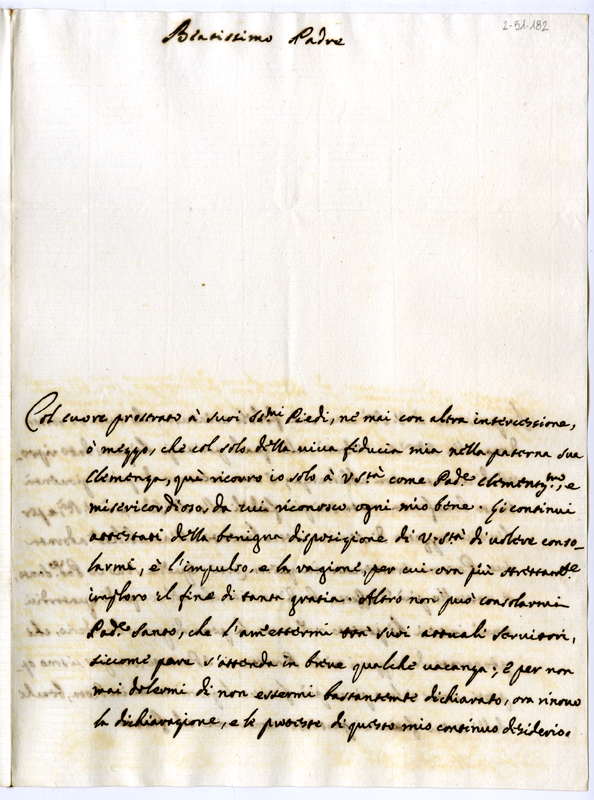 2-51-182
Beatissimo Padre
Col cuore prostrato à suoi SS.mi Piedi, nè mai con altra intercessione,
ò mezzo, che col solo della viva fiducia mia nella paterna sua
Clemenza, quà ricouro io solo à V. Stà come Pad.e Clementiss.mo, e
misericordioso, da cui riconosco ogni mio bene. Gi continui
attestati della benigna disposizione di V. Stà di volere conso-
larmi, è l'impulso, e la ragione, per cui ora più strettam.te
imploro il fine di tanta gratia. Altro non può consolarmi
Pad.e Santo, che l'ammettermi trà suoi attuali servitori,
siccome pare s'attenda in breve qualche vacanza; E per non
mai dolermi di non essermi bastantemte dichiarato, ora rinovo
la dichiarazione, e le proteste di questo mio continuo desiderio.